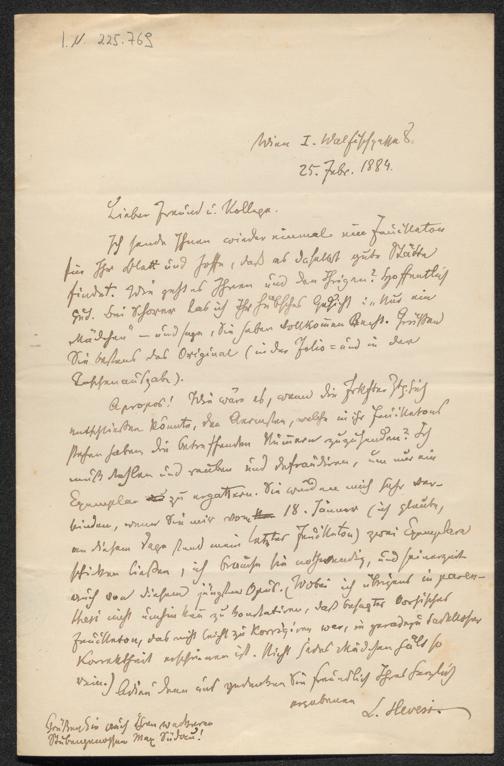 I.N. 225.769
Wien I. Walfischgasse 8.
25. Febr. 1884.
Lieber Freund u. Kollege.
Ich sende Ihnen wieder einmal ein Feuilleton
für Ihr Blatt und hoffe, daß es daselbst gute Stätte
findet. Wie geht es Ihnen und den Ihrigen? Hoffentlich
gut. Bei Schorer las ich Ihr hübsches Gedicht: „Nur ein
Mädchen“ – und sage, Sie haben vollkommen Recht. Grüßen
Sie bestens das Original (in der Folio= und in der
Taschenausgabe).
Apropos! Wie wäre es, wenn die sich
entschließen könnte, den Aermsten, welche in ihr Feuilletons
stehen haben die betreffenden Nummern zuzusenden? Ich
muß stehlen und rauben und defraudiren, um nur ein
Exemplar zu ergattern. Sie würden mich sehr ver-
binden, wenn Sie mir vom 18. Jänner (ich glaube,
an diesem Tage stand mein letztes Feuilleton) zwei Exemplare
schicken ließen, ich brauche sie nothwendig, und seinerzeit
auch von diesem jüngsten Opus. (Wobei ich übrigens in paren-
thesi nicht umhin kann zu konstatiren, daß besagtes
Feuilleton, das nicht leicht zu korrigiren war, in geradezu tadelloser
Korrektheit erschienen ist. Nicht jedes Mädchen hält so
rein.) Adieu denn und gedenken Sie freundlich Ihres herzlich
ergebenen
L. Hevesi.
Grüßen Sie auch Ihren wackeren
Stubengenossen Max